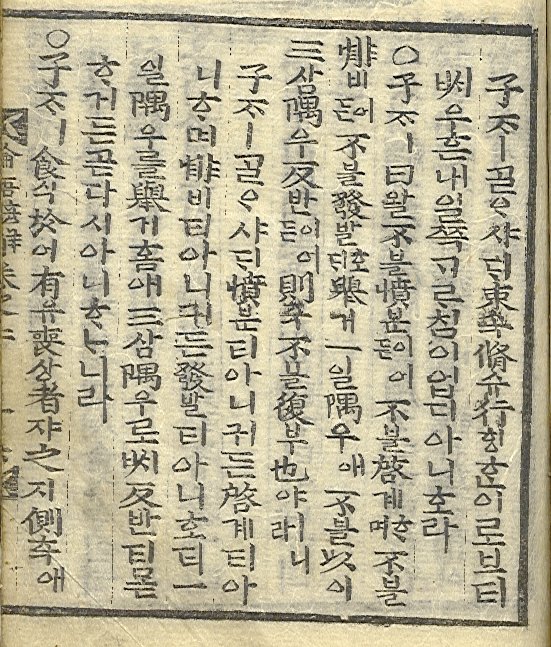 子ᄌᆞㅣᄀᆞᆯᄋᆞ샤ᄃᆡ束속脩슈行ᄒᆡᆼᄒᆞᆫ이로브터
ᄡᅥ우흔내일쯕ᄀᆞᄅᆞ침이업디아니호라
○子ᄌᆞㅣ曰왈不블憤분이어든不블啓계ᄒᆞ며不블
悱비어든不블發발호ᄃᆡ擧거一일隅우애不블以이
三삼隅우反반이어든則즉不블復부也야ㅣ니라
子ᄌᆞㅣᄀᆞᆯᄋᆞ샤ᄃᆡ憤분티아니커든啓계티아
니ᄒᆞ며悱비티아니커든發발티아니호ᄃᆡ一
일隅우를擧거홈애三삼隅우로ᄡᅥ反반티몯
ᄒᆞ거든곧다시아니ᄒᆞᄂᆞ니라
○子ᄌᆞㅣ食식於어有유喪상者쟈之지側측애
論語諺解卷之二